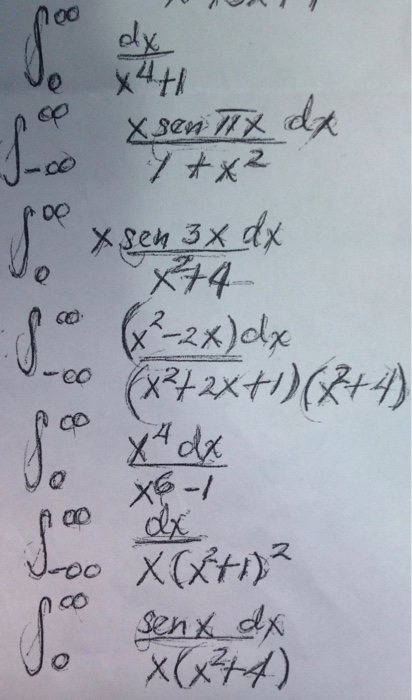 ∫₀^∞ dx / (x⁴+1)
∫₋∞^∞ x sen πx dx / (1 + x²)
∫₀^∞ x sen 3x dx / (x²+4)
∫₋∞^∞ (x²-2x)dx / ((x²+2x+1)(x²+4))
∫₀^∞ x⁴ dx / (x⁶-1)
∫₋∞^∞ dx / (x(x²+1)²)
∫₀^∞ sen x dx / (x(x²+4))